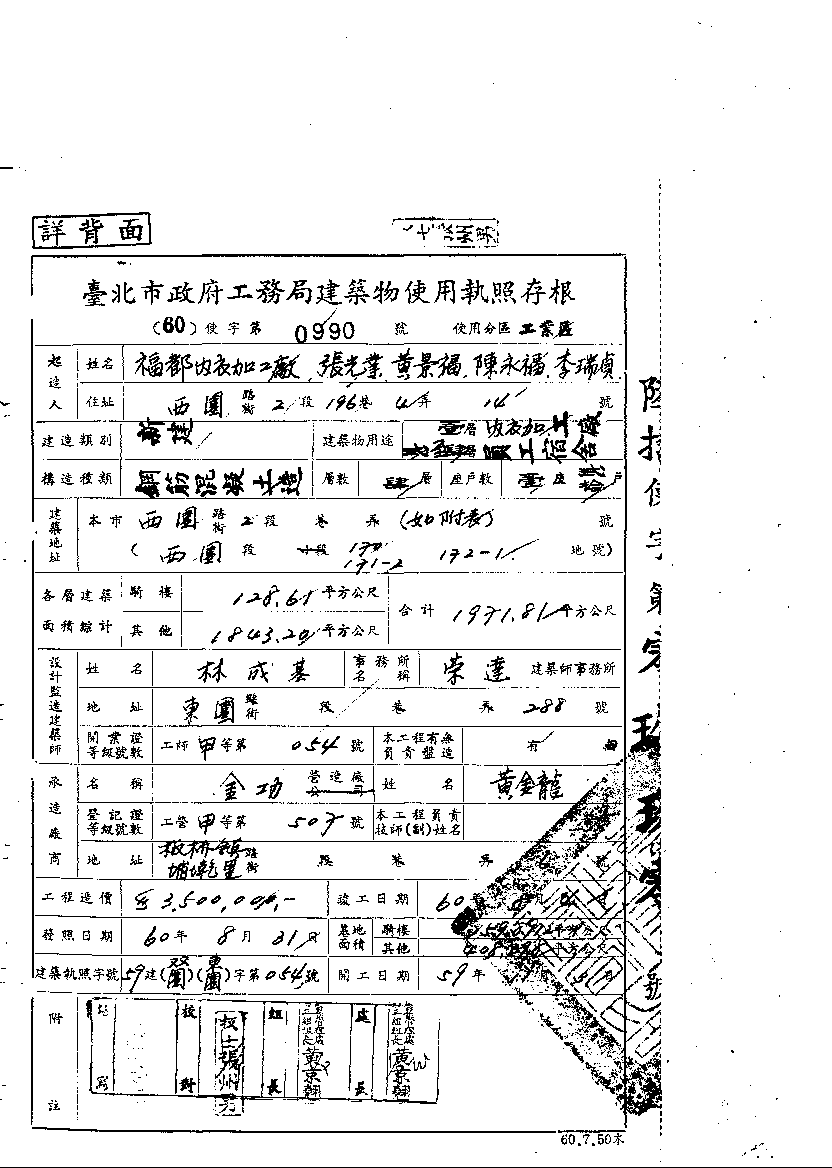 詳背面
臺北市政府工務局建築物使用執照存根
(60)使字第 0990 號 使用分區 工業區
起造人 姓名 福都內衣加工廠、張光業、黃景福、陳永福、李瑞貞
住址 西園 路街 2段 196巷 4弄 14 號
建造類別 新建 建築物用途 壹層內衣加工廠
員工宿舍
構造種類 鋼筋混凝土造 層數 肆層 座戶數 座 戶
建築地址 本市 西園 路街 2段 巷 弄 (如附表) 號
(西園 段 小段 170 171-2 172-1 地號)
各層建築面積綜計 騎樓 128.61平方公尺 合計 1971.81平方公尺
其他 1843.20平方公尺
設計監造建築師 姓名 林成基 事務所名稱 榮達 建築師事務所
地址 東園 路街 段 巷 弄 288 號
開業證等級號數 工師甲等第 054 號 本工程有無負責監造 有
承造廠商 名稱 金功 營造廠公司 姓名 黃金龍
登記證等級號數 工營甲等第 507 號 本工程負責技師(副)姓名
地址 板橋鎮埔墘里 路街 段 巷 弄 號
工程造價 3,500,000.- 竣工日期 60年 月
發照日期 60年 8月 31日 基地面積 騎樓 平方公尺
其他 平方公尺
建築執照字號 59建(雙園)(東園)字第054號 開工日期 59年
附註 校對 技士張州男 組長 黃京翱 處長 黃京翱
60.7.50本
陸拾使字第零玖玖零號